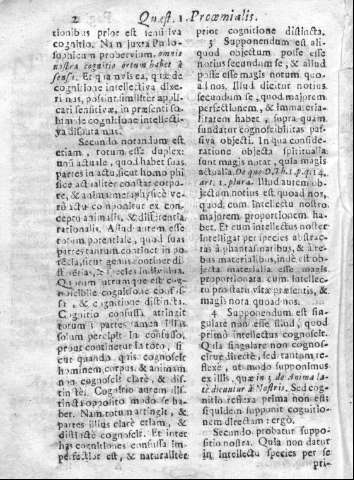 2 Quæst. 1. Proœmialis.
tionibus prior est sensitiva
cognitio. Nam juxta Philo
sophicum proberviam, omnis
nostra cognitio ortum habet à
sensu. Et quamvis ea, quæ de
cognitione intellectiva dixe
ri nas, possint similiter appli
cari sensitivæ, in præsenti so
lum de cognitione intellecti
va disputamus.
Secundo notandum est
etiam, totum esse duplex:
unū actuale, quod habet suas
partes in actu, sicut homo phi
sice actualiter constat corpo
re, & anima: metaphysicè ve
rò actu componitur ex con
ceptu animalis, & differentia
rationalis. Aliud autem esse
totum potentiale, quod suas
partes tantum continet in po
tentia, sicut genus continet dif
ferentias, & species individua.
cognoscibile cognitione confu
sa, & cognitione distincta.
Cognitio confusa attingit
totum; partes autem illius
solum percipit in confuso,
prout continentur in toto, si
cut quando quis cognoscit
hominem corpus, & animam
non cognoscit clarè, & dis
tinctè. Cognitio autem dis
tincta opposito modo se ha
bet. Nam totum attingit, &
partes illius clarè etiam, &
distinctè cognoscit. Et inter
has cognitiones confusa im
perfectior est, & naturaliter
prior cognitione distincta.
3 Supponendum est ali
quod objectum posse esse
notius secundum se, & aliud
posse esse magis notum quo
ad nos. Illud dicitur notius
secundum se, quod majorem
perfectionem, & immateria
litatem habet, supra quam
fundatur cognoscibilitas pas
siva objecti. In qua conside
ratione objecta spiritualia
sunt magis nota, quia magis
actualia. De quo D.Th. 1.p.q.14.
art. 1. plura. Illud autem ob
jectum notius est quoad nos,
quod cum intellectu nostro
majorem proportionem ha
bet. Et cum intellectus noster
intelligat per species abstrac
tas à phantasmatibus, & à re
bus materialibus, inde est ob
jecta materialia esse magis
proportionata cum intellec
tu pro statu vitæ præsentis, &
magis nota quoad nos.
4. Supponendum est sin
gulare non esse illud, quod
primò intellectus cognoscit.
Quia singulare non cognos
citur directè, sed tantum re
flexè, ut modo supponimus
ex illis, quæ in 3. de Anima la
tè dicantur à Nostris. Sed cog
nitio reflexa prima non est:
siquidem supponit cognitio
nem directam: ergò.
Secundo probatur suppo
sitio nostra. Quia non datur
in Intellectu species per se
pri-